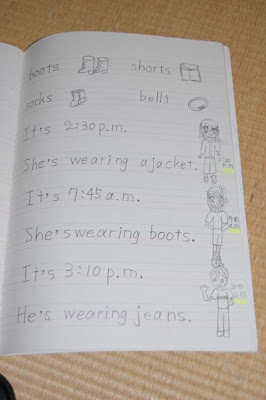 boots shorts
socks bellt
It's 2:30 p.m.
She's wearing a jacket.
It's 7:45 a.m.
She's wearing boots.
It's 3:10 p.m.
He's wearing jeans.